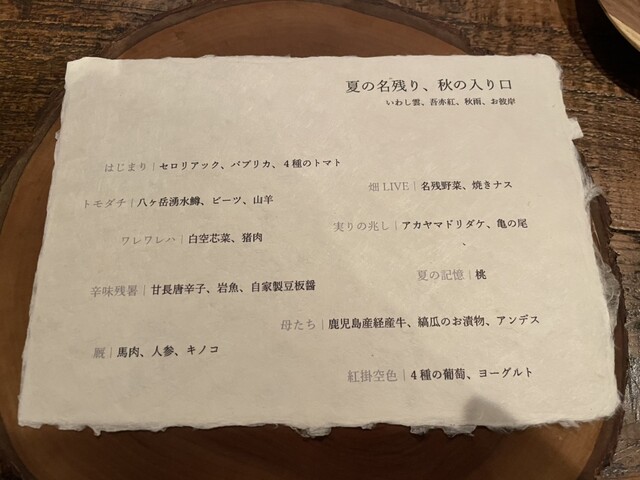 夏の名残り、秋の入り口
いわし雲、吾亦紅、秋雨、お彼岸
はじまり｜セロリアック、パプリカ、4種のトマト
畑LIVE｜名残野菜、焼きナス
トモダチ｜八ヶ岳湧水鱒、ビーツ、山羊
実りの兆し｜アカヤマドリダケ、亀の尾
、
ワレワレハ｜白空芯菜、猪肉
夏の記憶｜桃
辛味残暑｜甘長唐辛子、岩魚、自家製豆板醤
母たち｜鹿児島産経産牛、縞瓜のお漬物、アンデス
厩｜馬肉、人参、キノコ
紅掛空色｜4種の葡萄、ヨーグルト